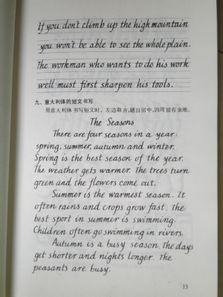 If you don't climb up the high mountain
you won't be able to see the whole plain.
The workman who wants to do his work
well must first sharpen his tools.
九、意大利体的短文书写
用意大利体书写短文时，左边取齐，
The Seasons
There are four seasons in a year:
spring, summer, autumn and winter.
Spring is the best season of the year.
The weather gets warmer. The trees turn
green and the flowers come out.
Summer is the warmest season. It
often rains and crops grow fast. The
best sport in summer is swimming.
Children often go swimming in rivers.
Autumn is a busy season. The days
get shorter and nights longer. The
peasants are busy.
13